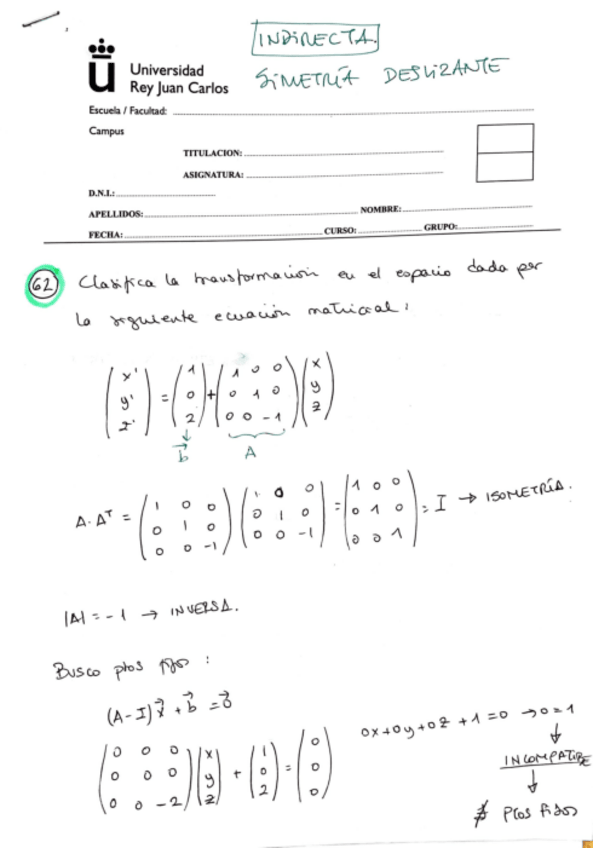 INDIRECTA.
SIMETRÍA DESLIZANTE
Universidad
Rey Juan Carlos
Escuela / Facultad:
Campus
TITULACION:
ASIGNATURA:
D.N.I.:
APELLIDOS: NOMBRE:
FECHA: CURSO: GRUPO:
62 Clasifica la transformación en el espacio dada por
la siguiente ecuación matricial:
(x' y' z') = (1 0 2) + (1 0 0 / 0 1 0 / 0 0 -1) (x y z)
b A
A·Aᵀ = (1 0 0 / 0 1 0 / 0 0 -1) (1 0 0 / 0 1 0 / 0 0 -1) = (1 0 0 / 0 1 0 / 0 0 1) = I → ISOMETRÍA.
|A| = -1 → INVERSA.
Busco ptos fijos :
(A-I)x⃗ + b⃗ = 0⃗
(0 0 0 / 0 0 0 / 0 0 -2) (x y z) + (1 0 2) = (0 0 0)
0x+0y+0z+1=0 → 0=1
↓
INCOMPATIBE
↓
∄ Ptos fijos